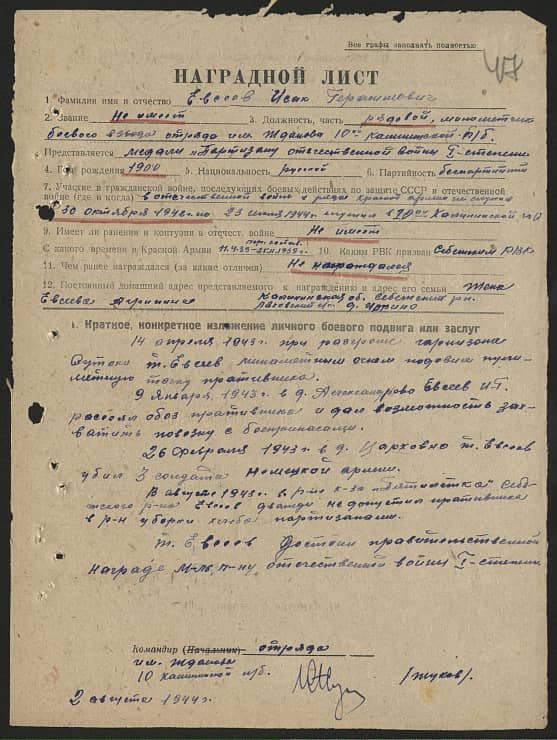 Все графы заполнять полностью
47
НАГРАДНОЙ ЛИСТ
1. Фамилия имя и отчество Евсеев Исак Герасимович
2. Звание Не имеет 3. Должность, часть рядовой, минометчик
боевого взвода отряда им. Жданова 10ой Калининской п/б.
Представляется медали "Партизану отечественной войны I-степени
4. Год рождения 1900 5. Национальность русский 6. Партийность беспартийный
7. Участие в гражданской войне, последующих боевых действиях по защите СССР и отечественной
войне (где и когда) в отечественной войне в рядах красной армии не служил
с 30 октября 1942г. по 23 июля 1944г. служил в 10ой Калининской п/б
9. Имеет ли ранения и контузии в отечест. войне Не имеет
С какого времени в Красной Армии 10. Каким РВК призван Себежским РВК
11. Чем ранее награждался (за какие отличия) Не награждался
12. Постоянный домашний адрес представляемого к награждению и адрес его семьи Жена
Евсеева Калининская об. Себежский р-н.
д.
I. Краткое, конкретное изложение личного боевого подвига или заслуг
14 апреля 1943г. при разгроме гарнизона
Сутоки т. Евсеев, минометным огнем подавил пуле-
метную точку противника.
9 Января, 1943г. в д. Александрово Евсеев И.Г.
растоял обоз противника и дал возможность зах-
ватить повозку с боеприпасами.
26 Февраля 1943г. в д. Царковно т. Евсеев
убил 3 солдата Немецкой армии.
В августе 1943г. в р-не к-за Себе-
жского р-на Евсеев дважды не допустил противника
в р-н уборки хлеба партизанами.
Т. Евсеев Достоин правительственной
награде М-ль п-ну отечественной войны I-степени
Командир (Начальник) отряда
им. Жданова
10 Калининской п/б.
/Жуков/.
2 августа 1944г.